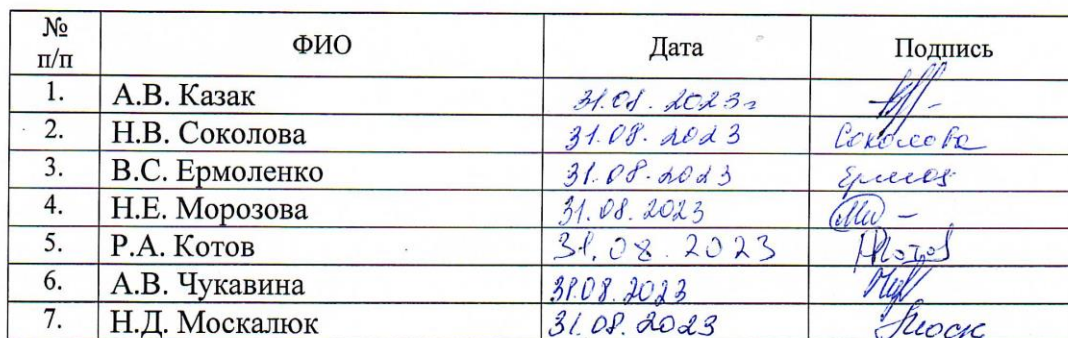 № п/п ФИО Дата Подпись
1. А.В. Казак 31.08.2023г
2. Н.В. Соколова 31.08.2023 Соколова
3. В.С. Ермоленко 31.08.2023
4. Н.Е. Морозова 31.08.2023
5. Р.А. Котов 31.08.2023
6. А.В. Чукавина 31.08.2023
7. Н.Д. Москалюк 31.08.2023